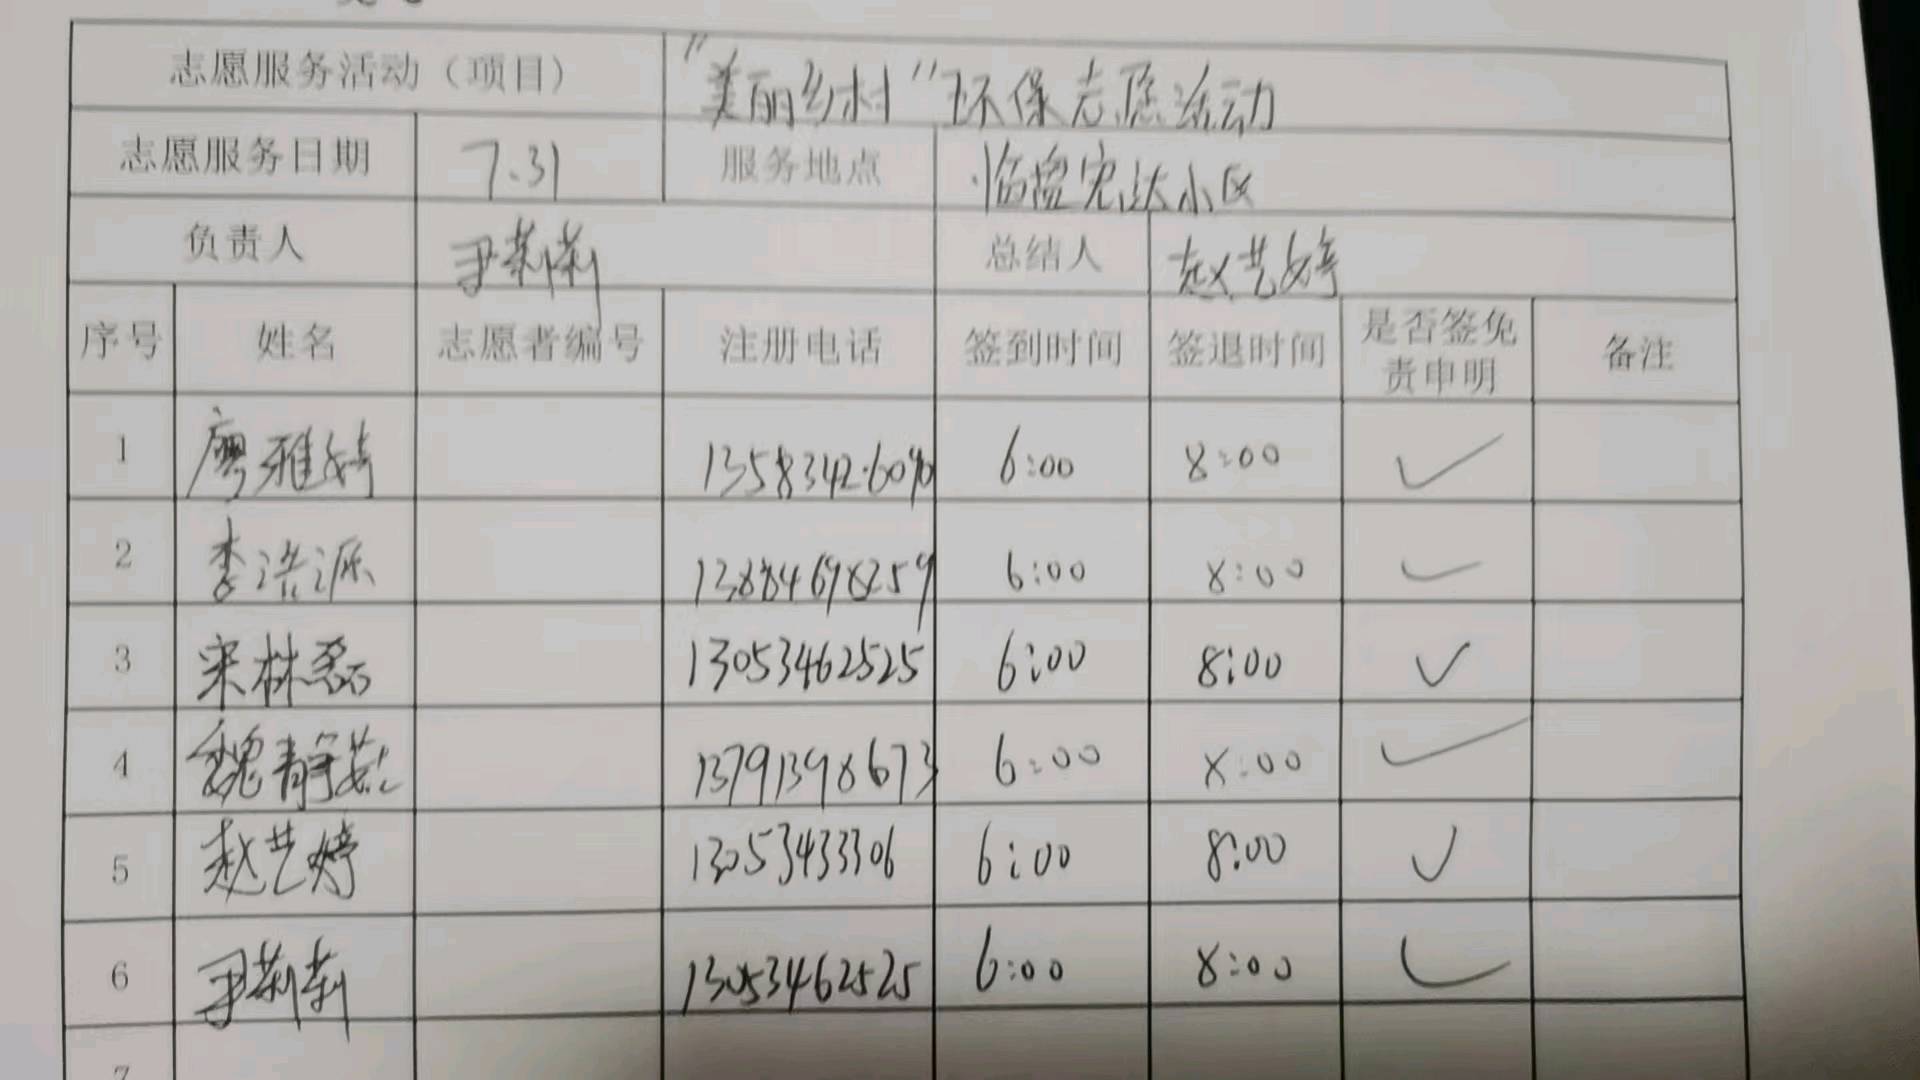 志愿服务活动（项目） "美丽乡村"环保志愿活动
志愿服务日期 7.31 服务地点 临盘宏达小区
负责人 尹莉莉 总结人 赵艺婷
序号 姓名 志愿者编号 注册电话 签到时间 签退时间 是否签免责申明 备注
1 廖雅婷 6:00 8:00 ✓
2 李浩源 6:00 8:00 ✓
3 宋林磊 13053462525 6:00 8:00 ✓
4 魏静 13791398673 6:00 8:00 ✓
5 赵艺婷 13053433306 6:00 8:00 ✓
6 尹莉莉 13053462525 6:00 8:00 ✓
7